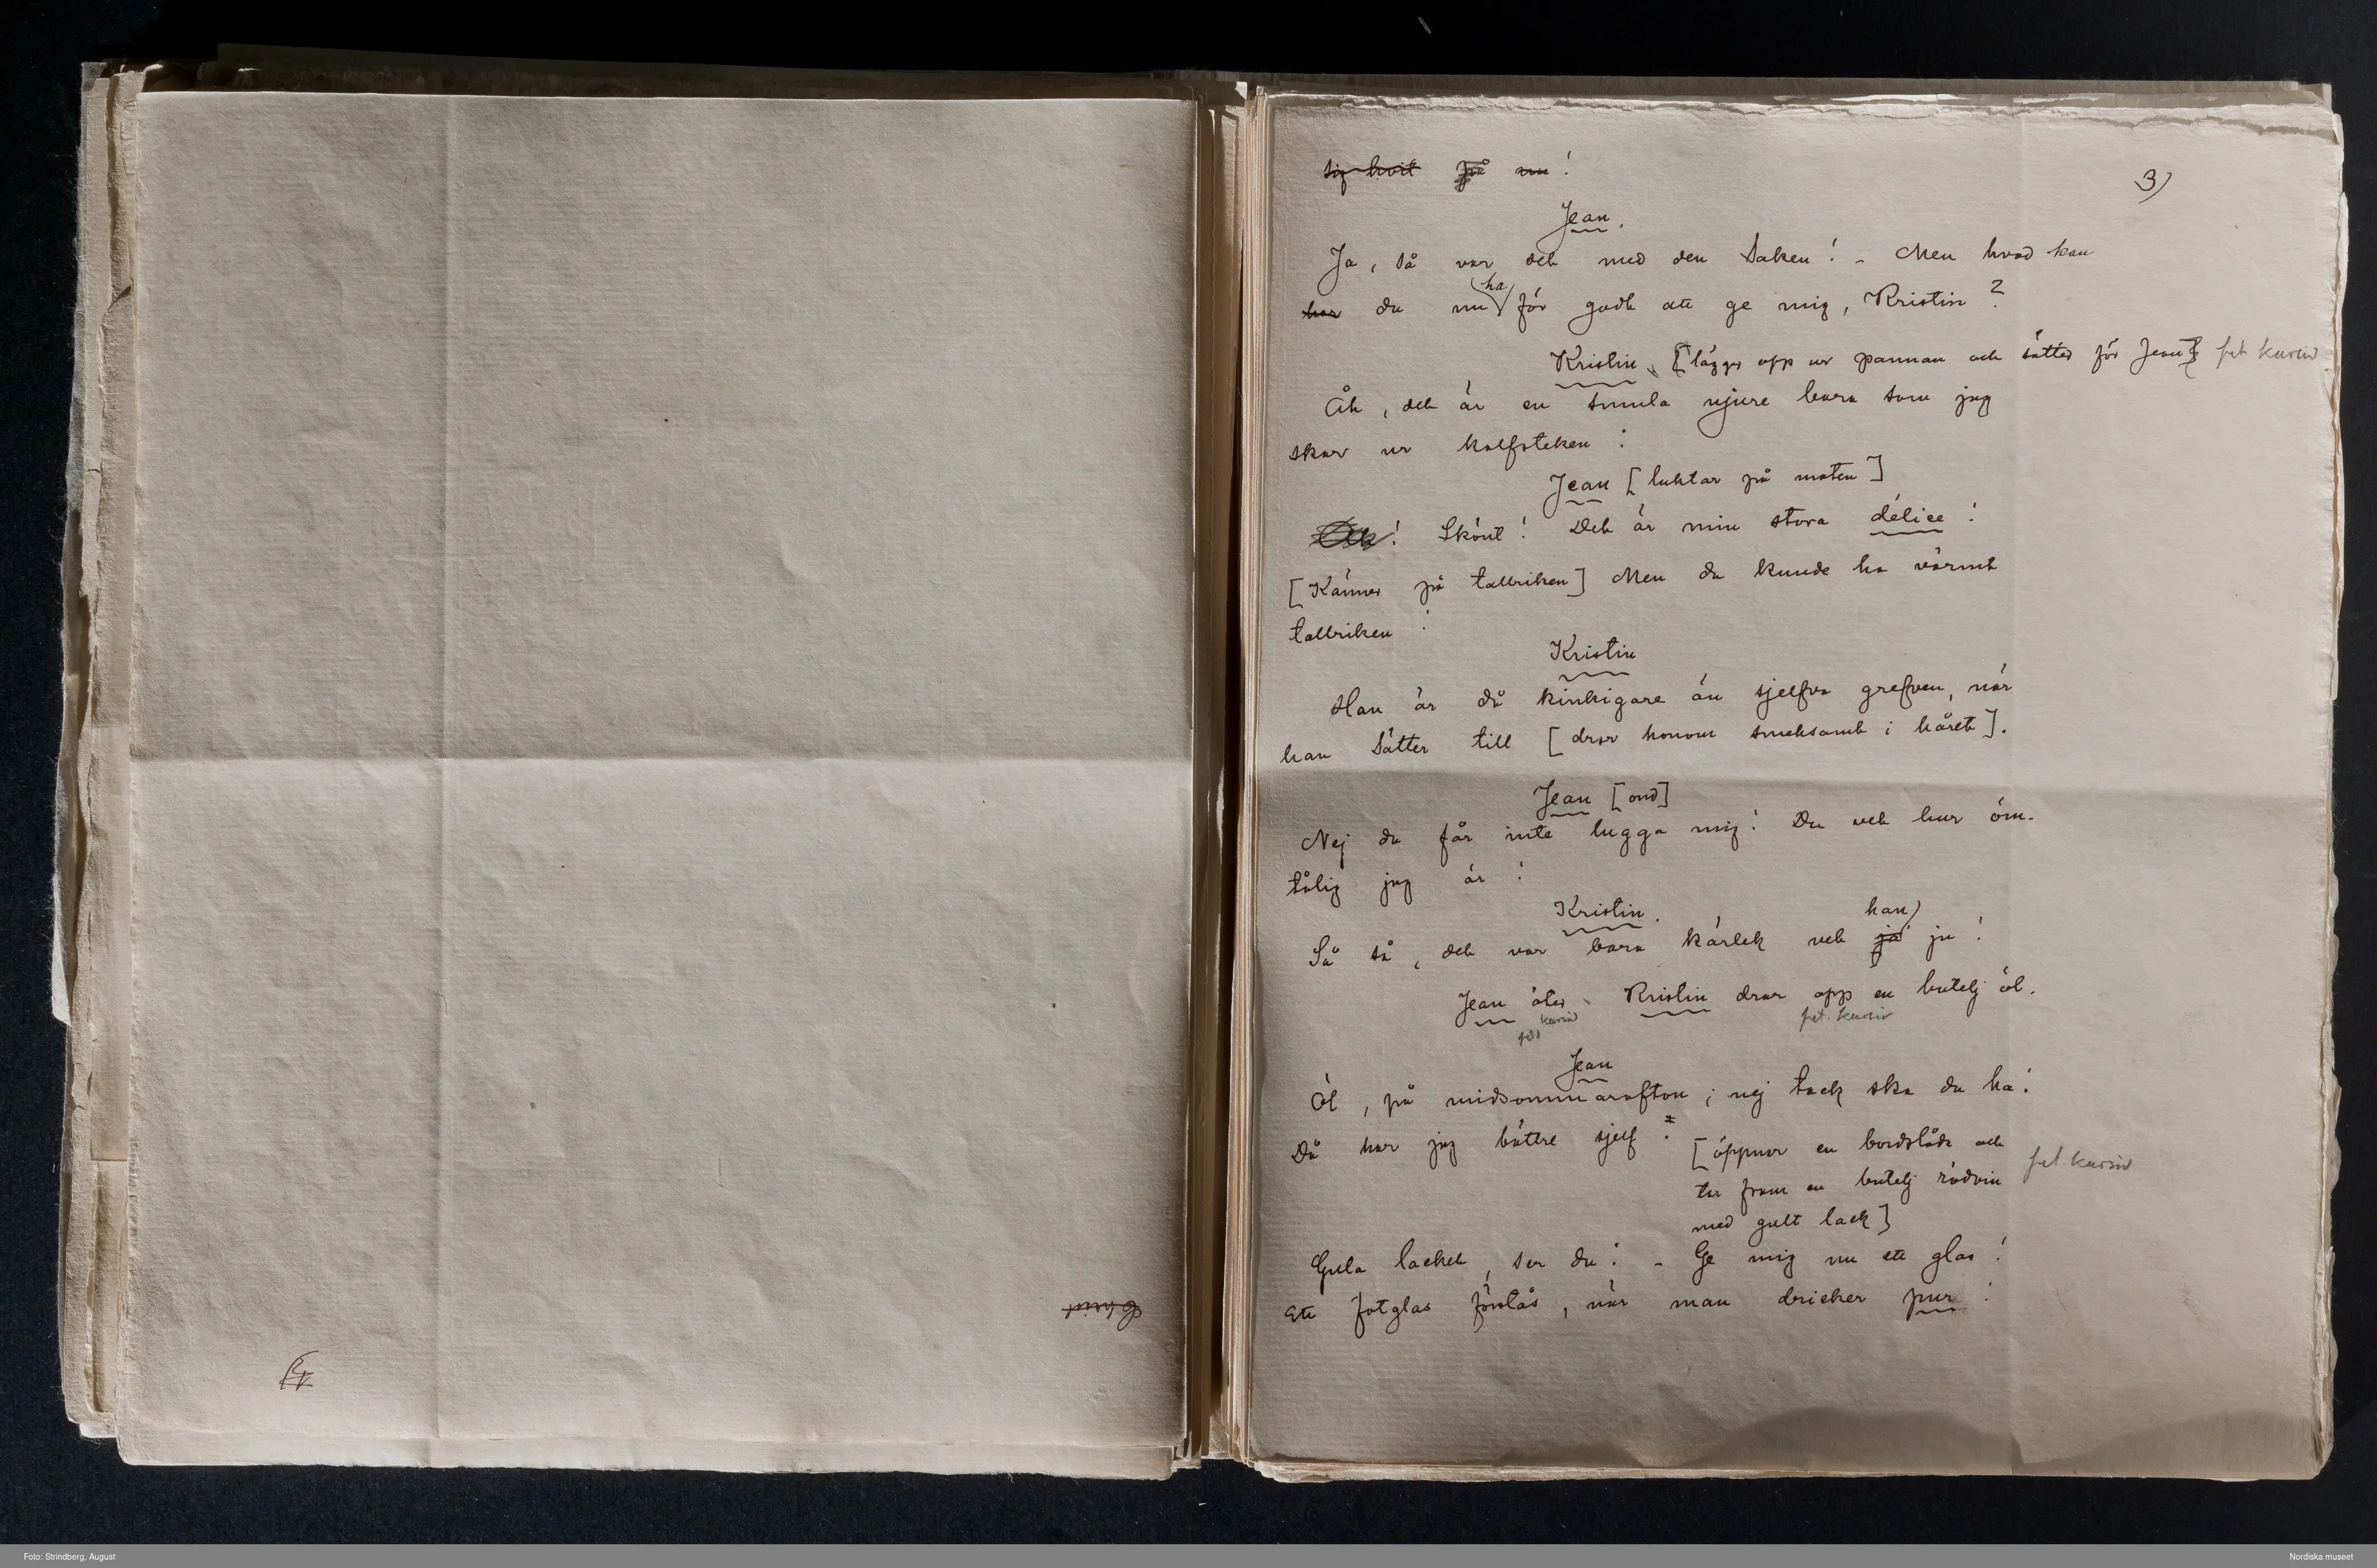 sig hvit på nu!
3)
Jean.
Ja, så var det med den saken! - Men hvad kan
har du nu ha för godt att ge mig, Kristin?
Kristin [lägger opp ur pannan och sätter för Jean] fet kursiv
Åh, det är en smula njure bara som jag
skar ur kalfsteken!
Jean [luktar på maten]
Ack! Skönt! Det är min stora délice!
[Känner på tallriken] Men du kunde ha värmt
tallriken!
Kristin
Han är då kinkigare än sjelfva grefven, när
han sätter till [drar honom smeksamt i håret].
Jean [ond]
Nej du får inte lugga mig! Du vet hur öm-
tålig jag är!
Kristin.
Så så, det var bara kärlek vet han ju!
Jean äter. Kristin drar opp en butelj öl.
fet kursiv fet. kursiv
Jean
Öl, på midsommarafton; nej tack ska du ha!
Då har jag bättre sjelf! [öppnar en bordslåda och
tar fram en butelj rödvin fet kursiv
med gult lack]
Gula lacket, ser du! - Ge mig nu ett glas!
Ett fotglas förstås, när man dricker pur!
Foto: Strindberg, August
Nordiska museet